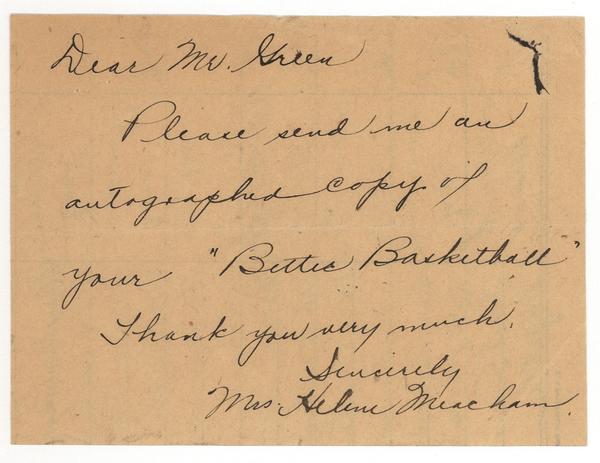 Dear Mr. Green
Please send me an
autographed copy of
your "Better Basketball"
Thank you very much.
Sincerely
Mrs. Helene Meacham.